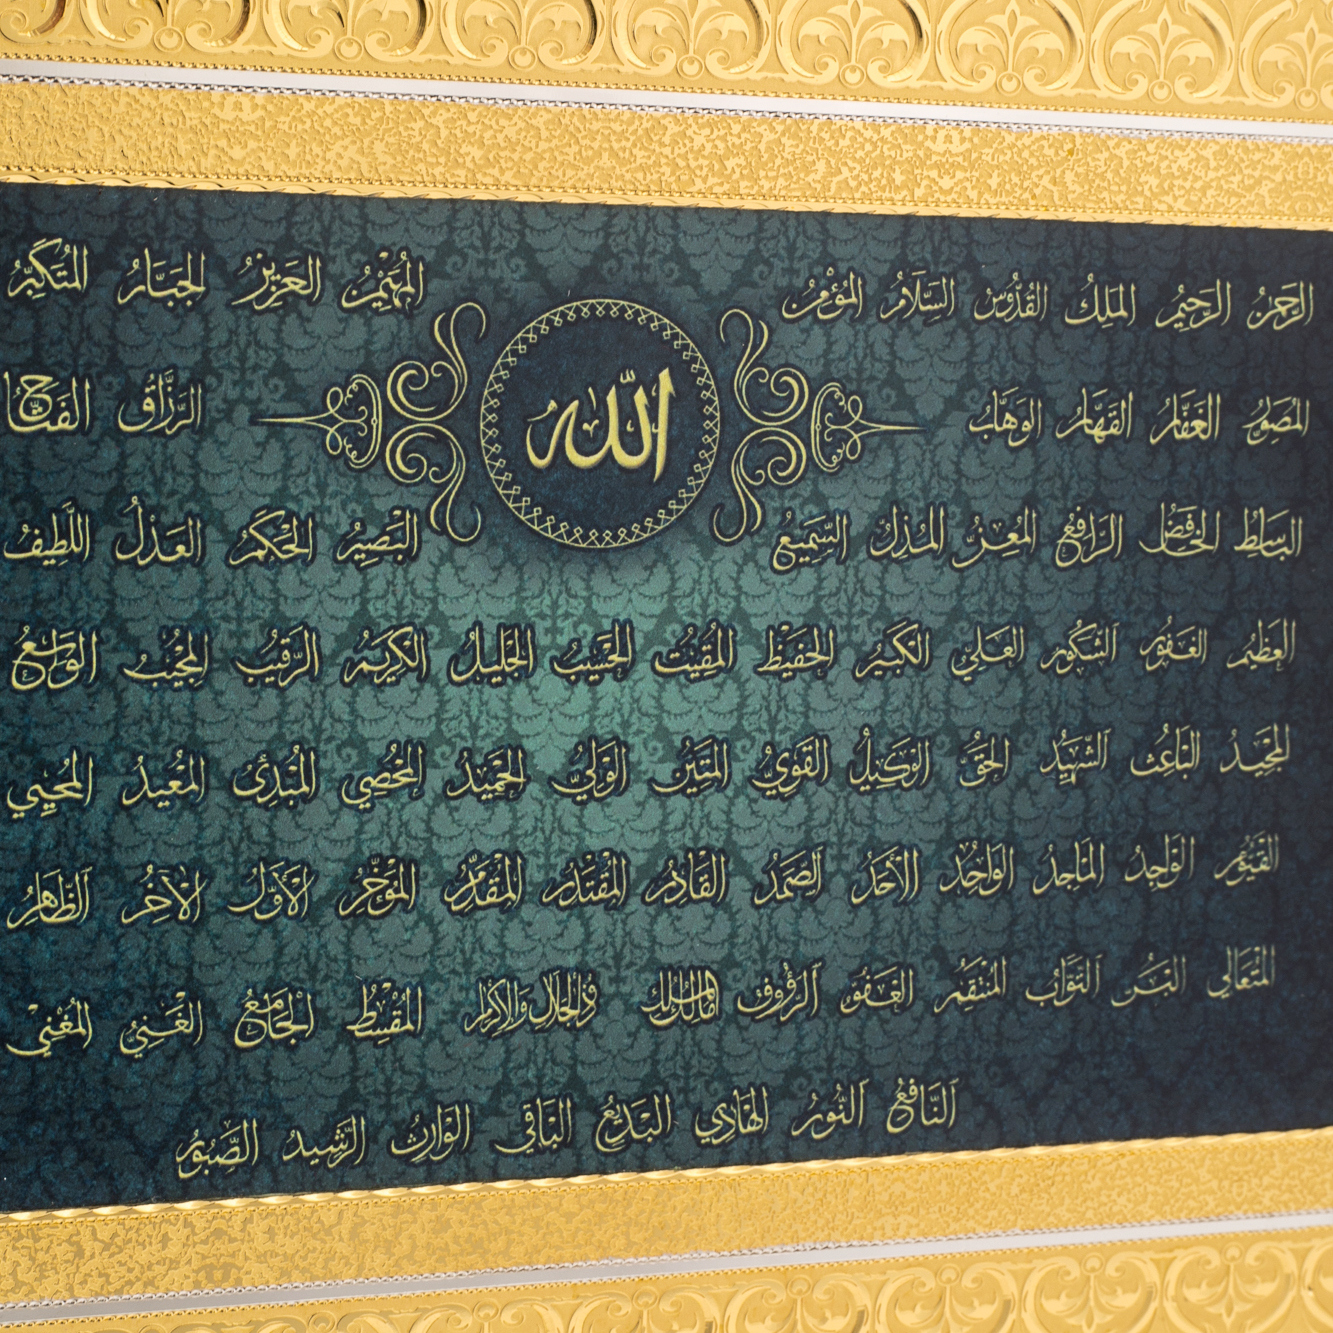 الرَّحْمٰنُ الرَّحِيْمُ المَلِكُ القُدُّوسُ السَّلَامُ المُؤْمِنُ المُهَيْمِنُ العَزِيزُ الجَبَّارُ المُتَكَبِّرُ
الله
المُصَوِّرُ الغَفَّارُ القَهَّارُ الوَهَّابُ الرَّزَّاقُ الفَتَّاحُ
البَاسِطُ الخَافِضُ الرَّافِعُ المُعِزُّ المُذِلُّ السَّمِيعُ البَصِيرُ الحَكَمُ العَدْلُ اللَّطِيفُ
العَظِيمُ الغَفُورُ الشَّكُورُ العَلِيُّ الكَبِيرُ الحَفِيظُ المُقِيتُ الحَسِيبُ الجَلِيلُ الكَرِيمُ الرَّقِيبُ المُجِيبُ الوَاسِعُ
المَجِيدُ البَاعِثُ الشَّهِيدُ الحَقُّ الوَكِيلُ القَوِيُّ المَتِينُ الوَلِيُّ الحَمِيدُ المُحْصِي المُبْدِئُ المُعِيدُ المُحْيِي
القَيُّومُ الوَاجِدُ المَاجِدُ الوَاحِدُ الأَحَدُ الصَّمَدُ القَادِرُ المُقْتَدِرُ المُقَدِّمُ المُؤَخِّرُ الأَوَّلُ الآخِرُ الظَّاهِرُ
المُتَعَالِي البَرُّ التَّوَّابُ المُنْتَقِمُ العَفُوُّ الرَّؤُوفُ مَالِكُ المُلْكِ ذُو الجَلَالِ وَالإِكْرَامِ المُقْسِطُ الجَامِعُ الغَنِيُّ المُغْنِي
النَّافِعُ النُّورُ الهَادِي البَدِيعُ البَاقِي الوَارِثُ الرَّشِيدُ الصَّبُورُ